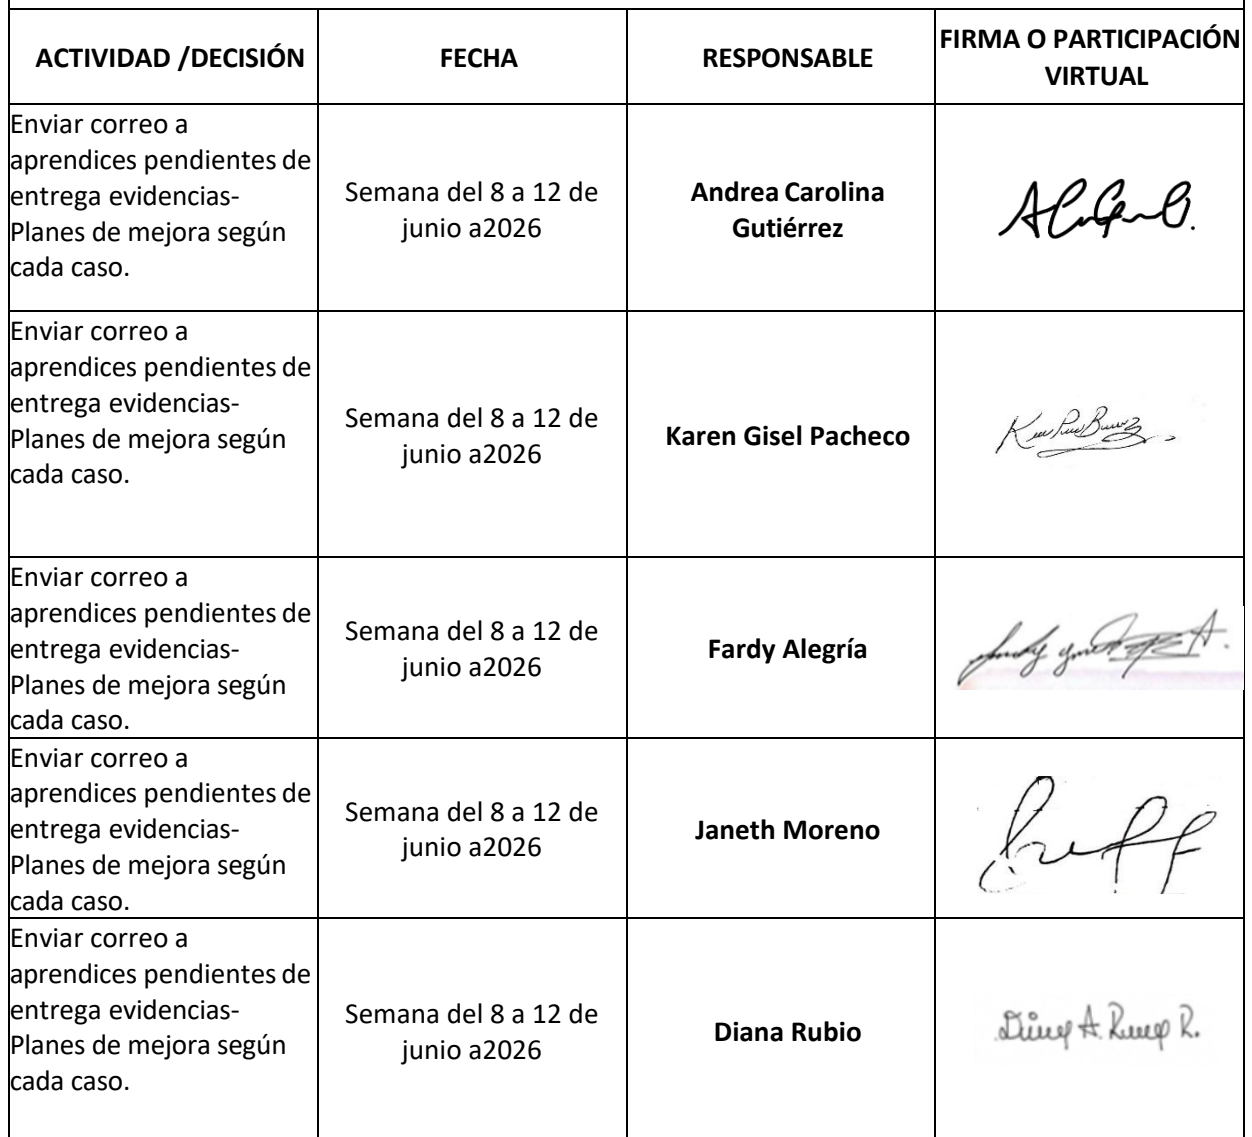 ACTIVIDAD /DECISIÓN
FECHA
RESPONSABLE
FIRMA O PARTICIPACIÓN
VIRTUAL
Enviar correo a
aprendices pendientes de
entrega evidencias-
Planes de mejora según
cada caso.
Semana del 8 a 12 de
junio a2026
Andrea Carolina
Gutiérrez
Enviar correo a
aprendices pendientes de
entrega evidencias-
Planes de mejora según
cada caso.
Semana del 8 a 12 de
junio a2026
Karen Gisel Pacheco
Enviar correo a
aprendices pendientes de
entrega evidencias-
Planes de mejora según
cada caso.
Semana del 8 a 12 de
junio a2026
Fardy Alegría
Enviar correo a
aprendices pendientes de
entrega evidencias-
Planes de mejora según
cada caso.
Semana del 8 a 12 de
junio a2026
Janeth Moreno
Enviar correo a
aprendices pendientes de
entrega evidencias-
Planes de mejora según
cada caso.
Semana del 8 a 12 de
junio a2026
Diana Rubio